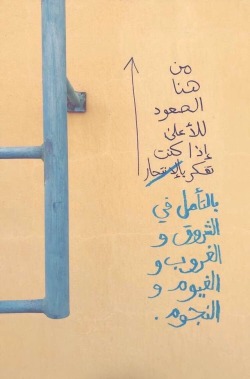 من
هنا
الصعود
للأعلى
إذا كنت
تفكر بالإنتحار
بالتأمل في
الشروق و
الغروب و
الغيوم و
النجوم.